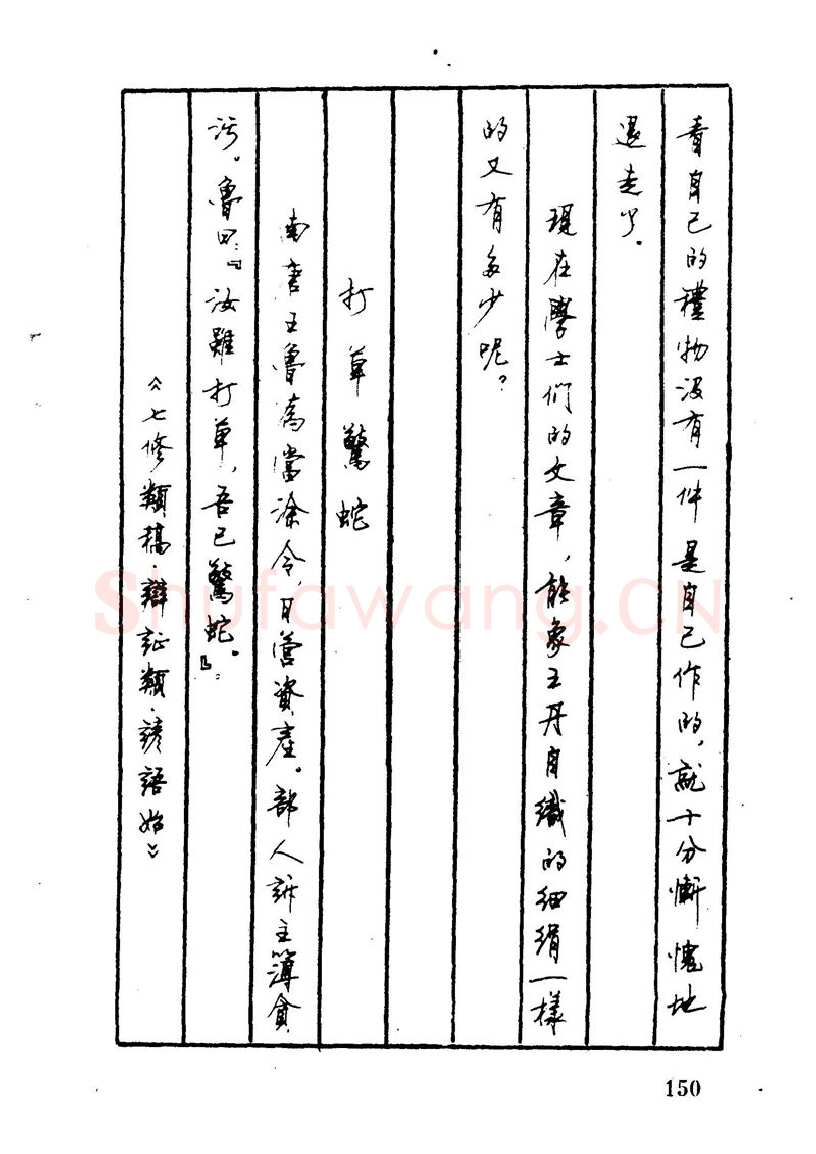 看自己的禮物沒有一件是自己作的,就十分慚愧地
退走了。
現在學士們的文章,能象王丹自織的细絹一樣
的又有多少呢?
打草驚蛇
南唐王魯為當涂令,日營資產。部人訴主簿貪
污。魯曰:『汝雖打草,吾已驚蛇。』
《七修類稿·辯証類·諺語始》
Shufawang.CN
150